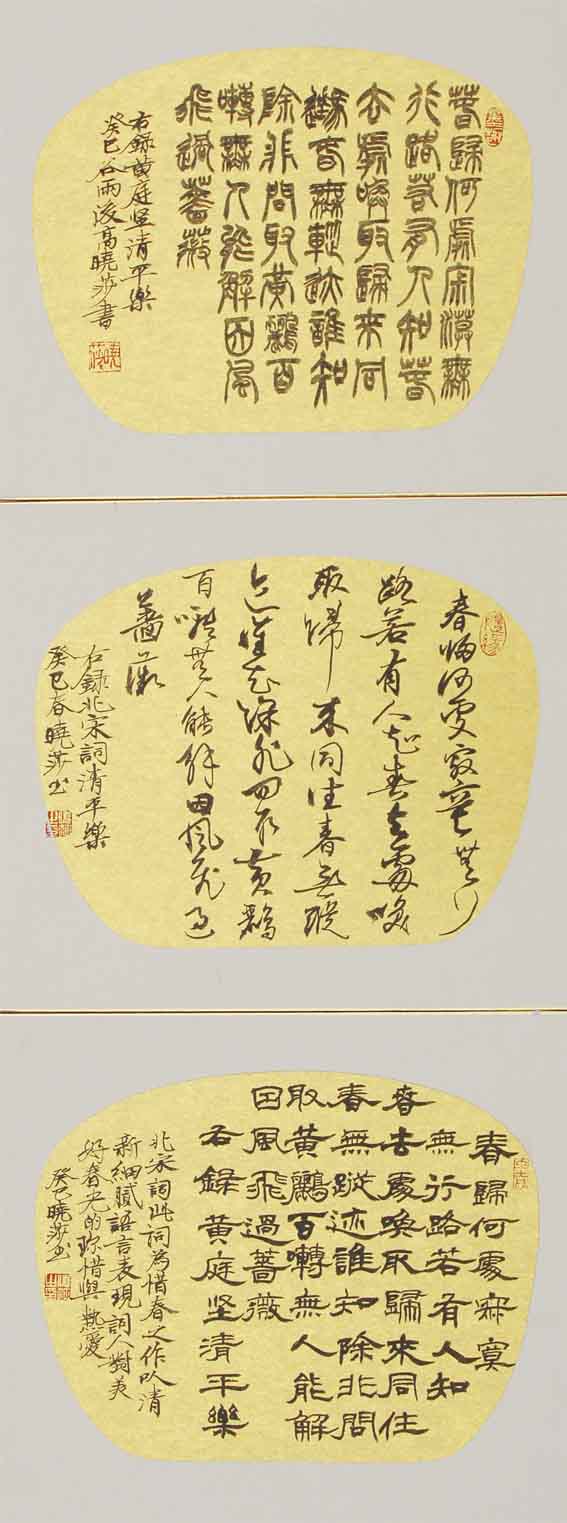 春歸何處寂漠無
行路若有人知春
去處喚取歸來同
住春無蹤迹誰知
除非問取黃鸝百
囀無人能解因風
飛過薔薇
右錄黃庭堅清平樂
癸巳谷雨後高曉莎書
曉莎
春歸何處寂寞無行
路若有人知春去處喚
取歸來同住春無蹤
迹誰知除非問取黃鸝
百囀無人能解因風飛過
薔薇
右錄北宋詞清平樂
癸巳春曉莎书
春歸何處寂寞
無行路若有人知
春去處喚取歸來同住
春無蹤迹誰知除非問
取黃鸝百囀無人能解
因風飛過薔薇
右錄黃庭坚清平樂
北宋詞此詞為惜春之作以清
新細膩語言表現詞人對美
好春光的珍惜與熱愛
癸巳曉莎书